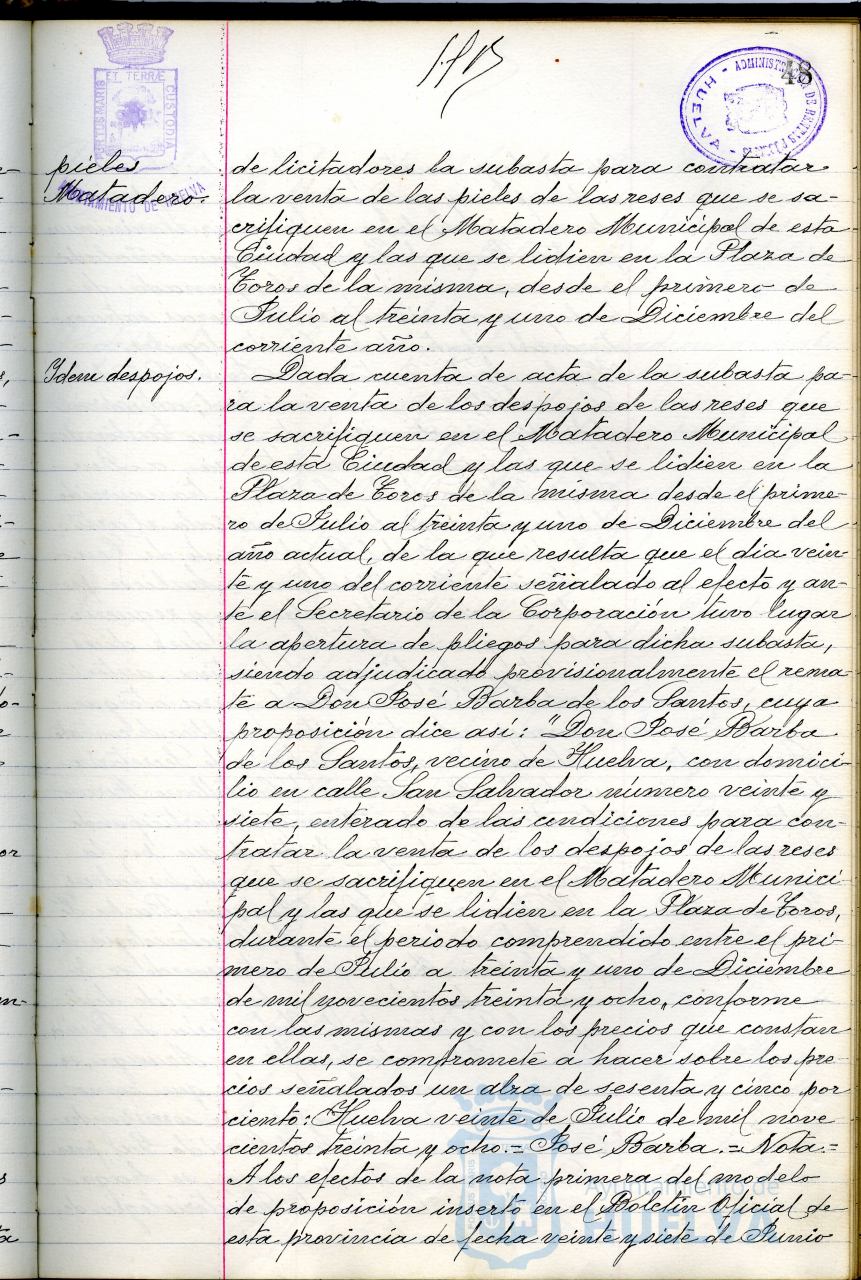 48
PORTUS MARIS
ET TERRÆ
CUSTODIA
AYUNTAMIENTO DE HUELVA
HUELVA
pieles
Matadero.
de licitadores la subasta para contratar
la venta de las pieles de las reses que se sa-
crifiquen en el Matadero Municipal de esta
Ciudad y las que se lidien en la Plaza de
Toros de la misma, desde el primero de
Julio al treinta y uno de Diciembre del
corriente año.
Idem despojos.
Dada cuenta de acta de la subasta pa-
ra la venta de los despojos de las reses que
se sacrifiquen en el Matadero Municipal
de esta Ciudad y las que se lidien en la
Plaza de Toros de la misma desde el prime-
ro de Julio al treinta y uno de Diciembre del
año actual, de la que resulta que el dia vein-
te y uno del corriente señalado al efecto y an-
te el Secretario de la Corporación tuvo lugar
la apertura de pliegos para dicha subasta,
siendo adjudicado provisionalmente el rema-
te a Don José Barba de los Santos, cuya
proposición dice así: "Don José Barba
de los Santos, vecino de Huelva, con domici-
lio en calle San Salvador número veinte y
siete, enterado de las condiciones para con-
tratar la venta de los despojos de las reses
que se sacrifiquen en el Matadero Munici-
pal y las que se lidien en la Plaza de Toros,
durante el periodo comprendido entre el pri-
mero de Julio a treinta y uno de Diciembre
de mil novecientos treinta y ocho, conforme
con las mismas y con los precios que constan
en ellas, se compromete a hacer sobre los pre-
cios señalados un alza de sesenta y cinco por
ciento: Huelva veinte de Julio de mil nove-
cientos treinta y ocho.= José Barba.= Nota.=
A los efectos de la nota primera del modelo
de proposición inserto en el Boletín Oficial de
esta provincia de fecha veinte y siete de Junio
Ayuntamiento de
HUELVA